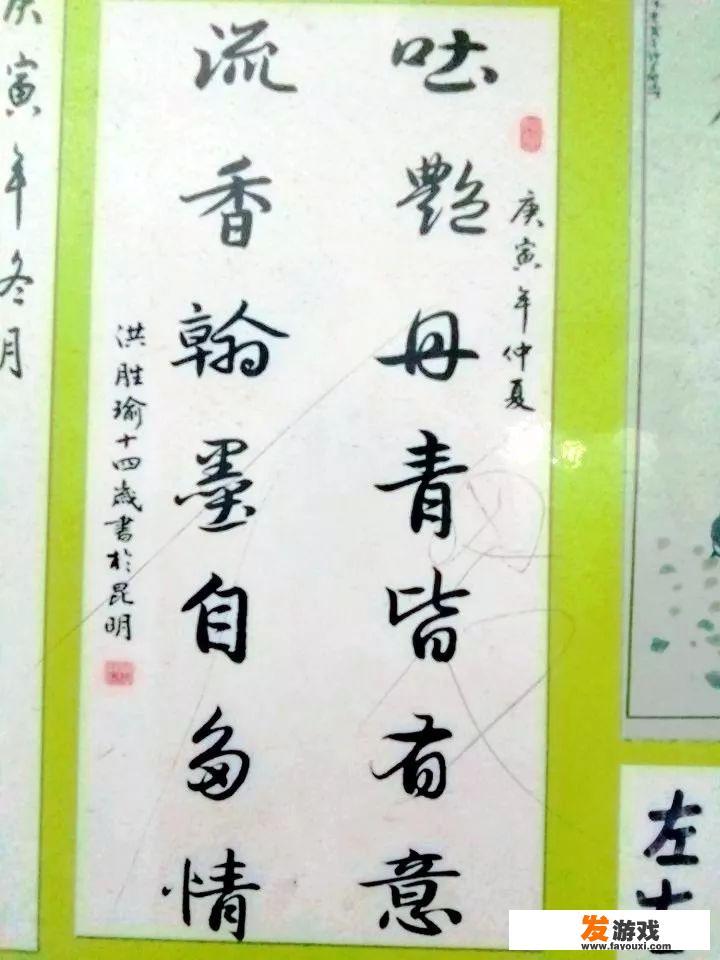 庚寅年仲夏
吐艳丹青皆有意
流香翰墨自多情
洪胜瑜十四岁书於昆明
庚寅年冬月
左
发游戏
www.fayouxi.com